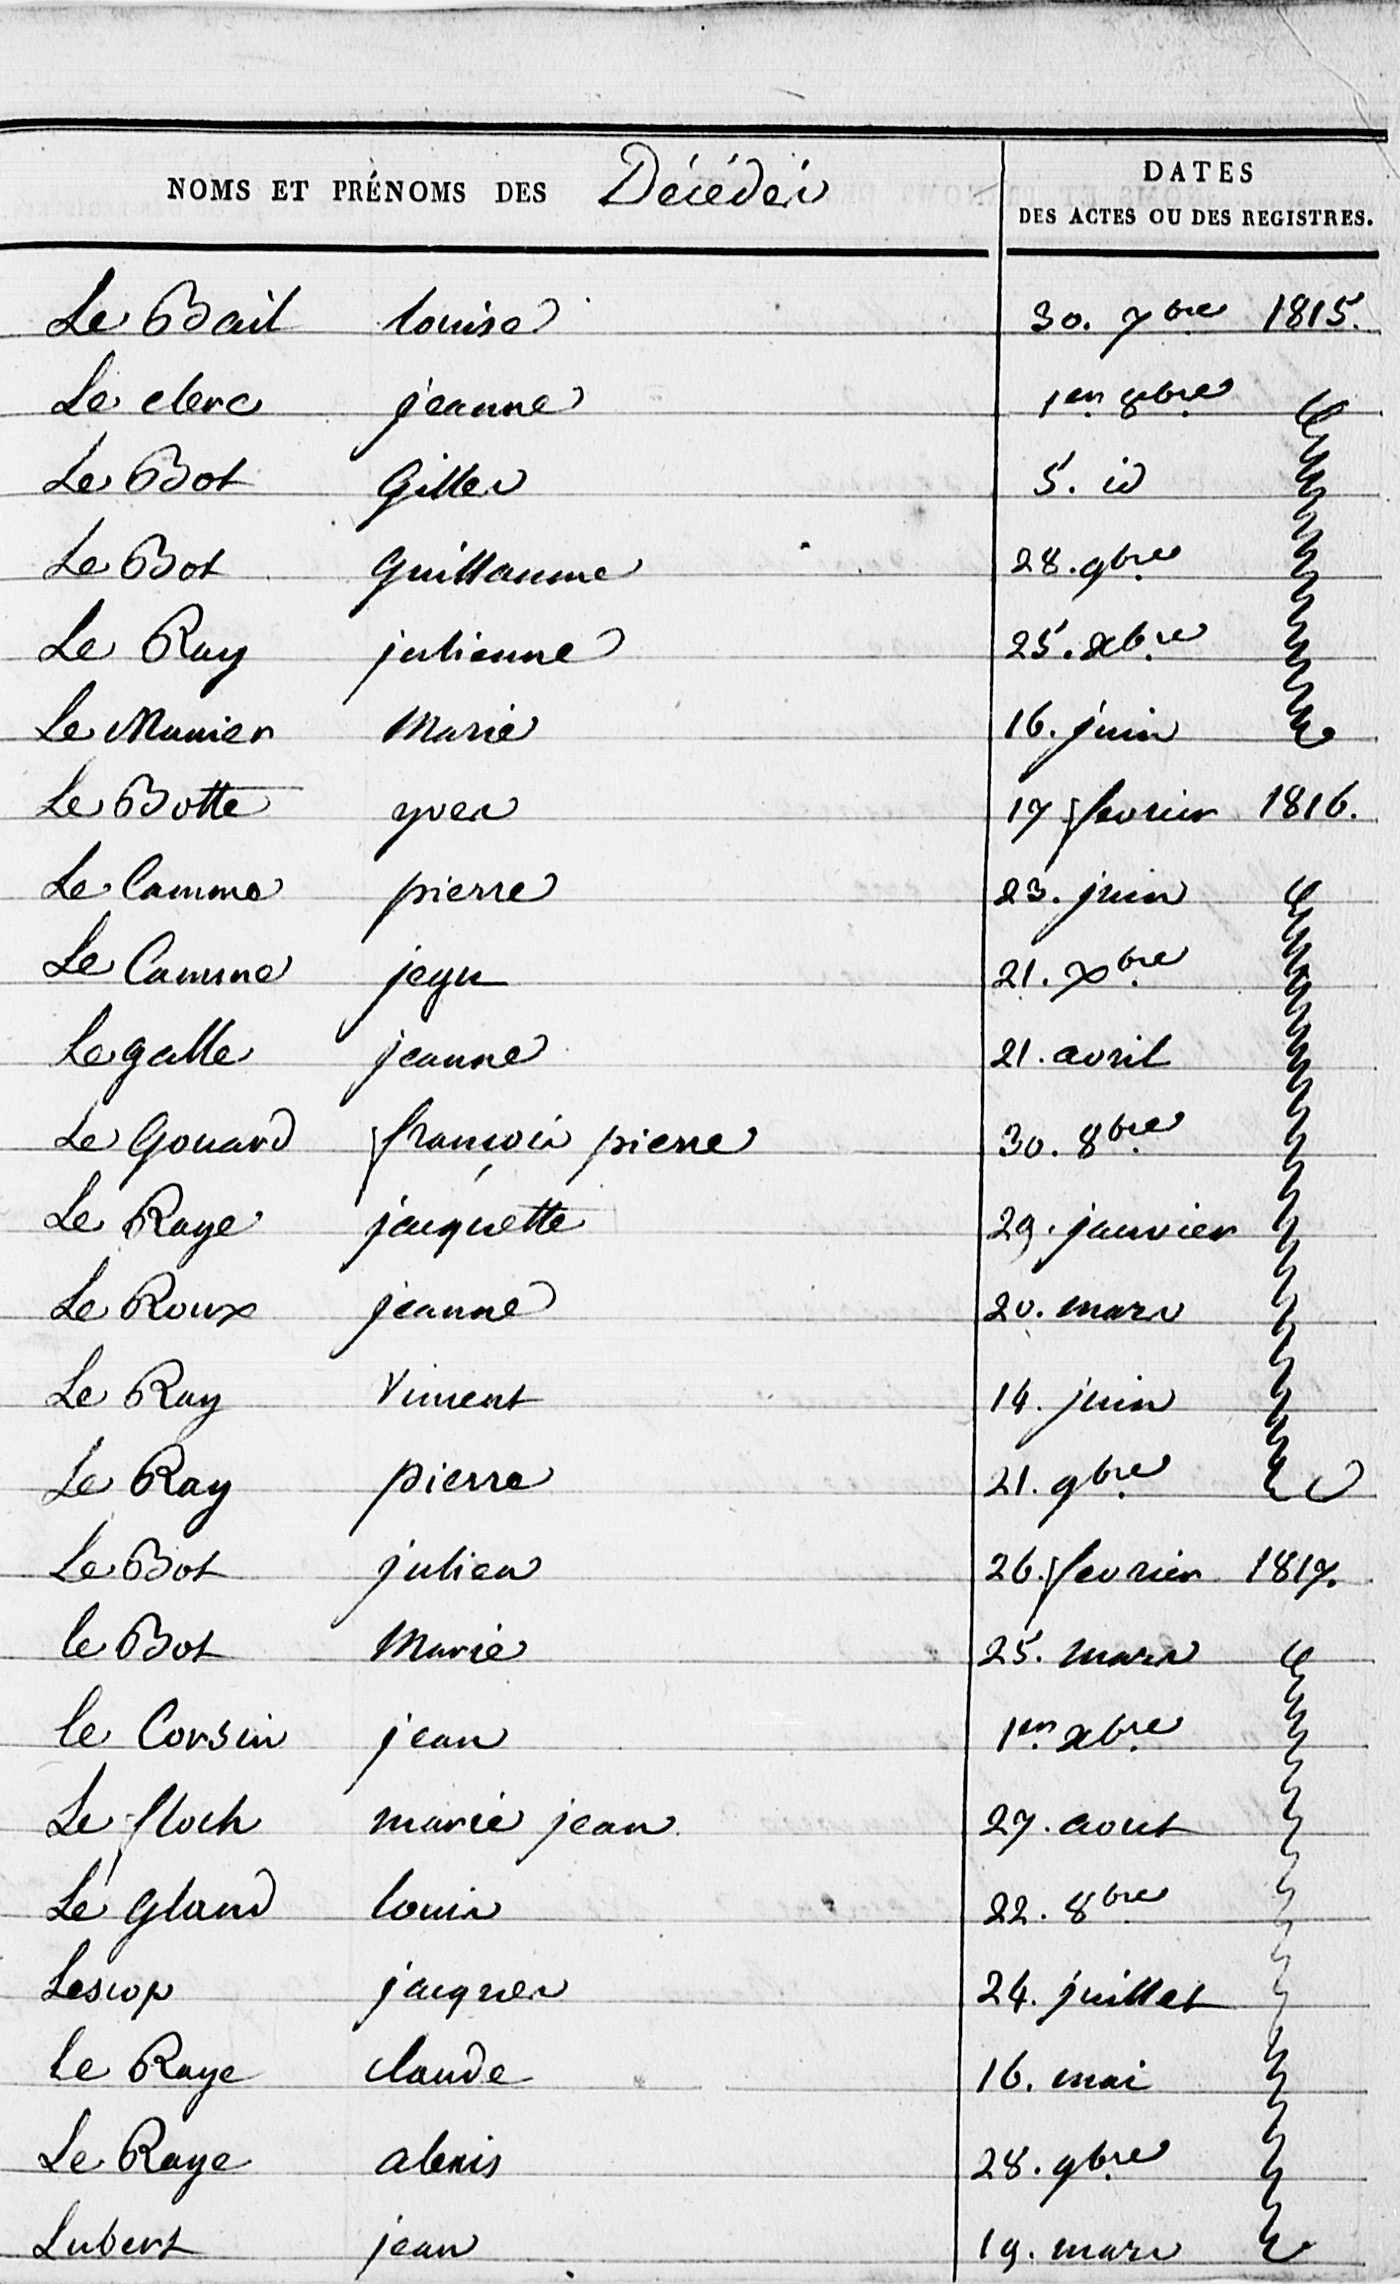 NOMS ET PRÉNOMS DES Décédés DATES
DES ACTES OU DES REGISTRES.
Le Bail louise 30. 7bre 1815.
Le clerc jeanne 1er 8bre
Le Bot Gilles 5. id
Le Bot Guillaume 28. 9bre
Le Ray julienne 25. xbre
Le Marie 16. juin
Le Botte yves 17 fevrier 1816.
Le Camme pierre 23. juin
Le Camme 21. bre
Le galle jeanne 21. avril
Le Gouard françois pierre 30. 8bre
Le Raye jacquette 29. janvier
Le Roux jeanne 20. mars
Le Ray Vincent 14. juin
Le Ray pierre 21. 9bre
Le Bot julien 26. fevrier 1817.
le Bot Marie 25. mars
le Corsin jean 1er xbre
Le floch marie jean 27. aout
Le Gland louis 22. 8bre
Lescop jacques 24. juillet
Le Raye claude 16. mai
Le Raye alexis 28. 9bre
Lubert jean 19. mars